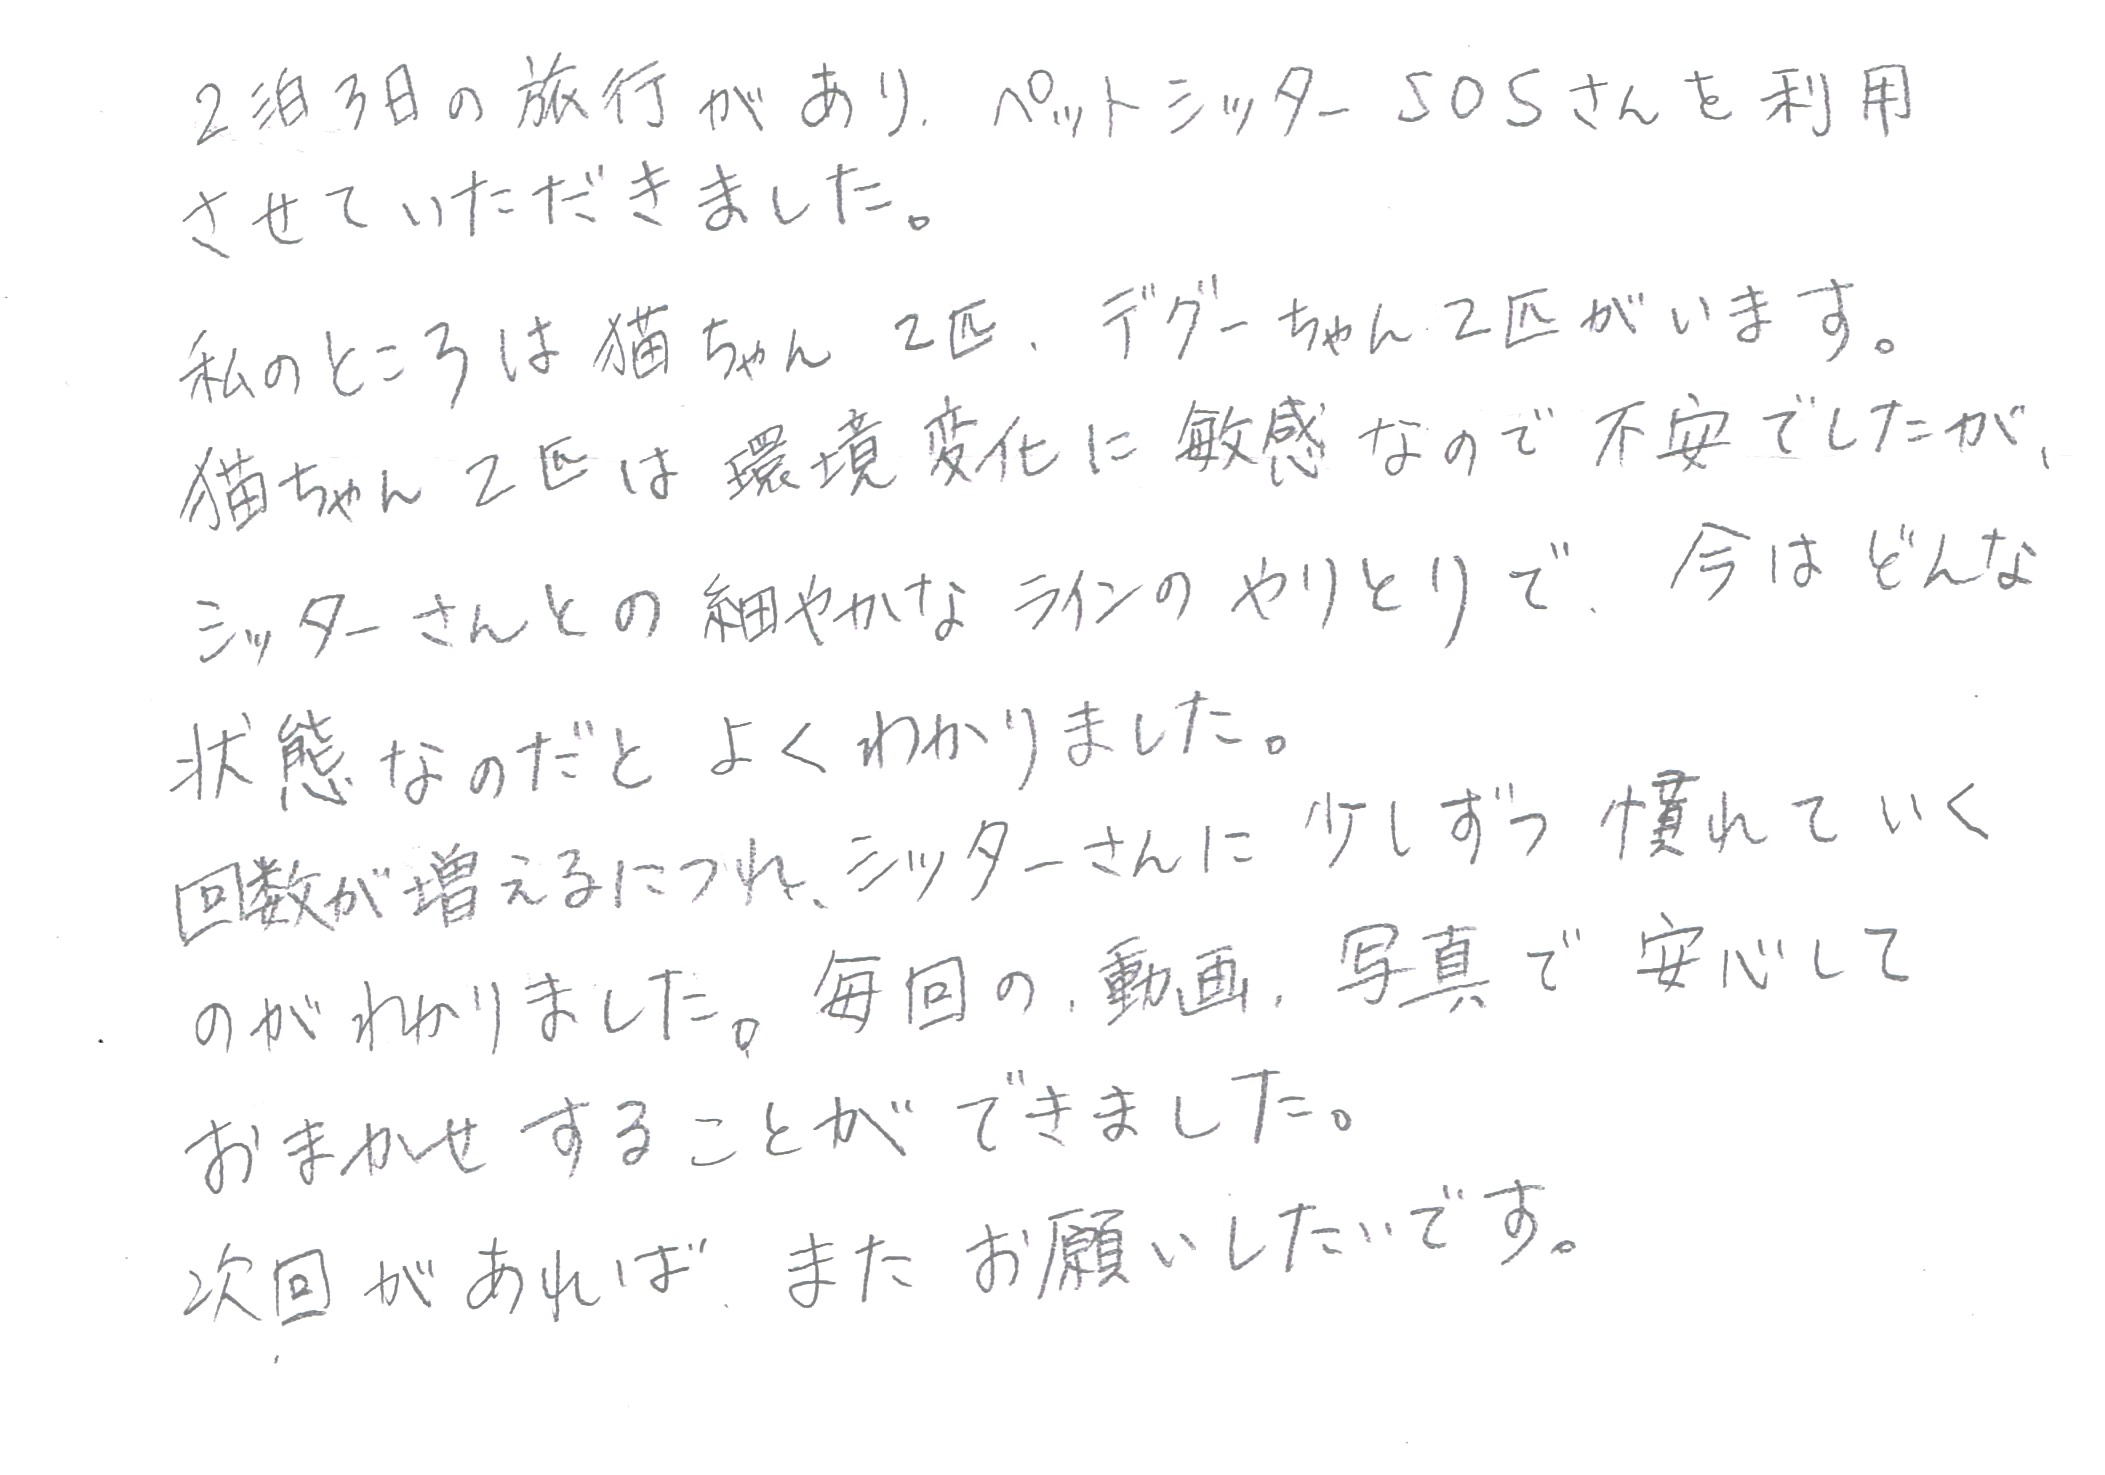 2泊3日の旅行があり、ペットシッターSOSさんを利用
させていただきました。
私のところは猫ちゃん2匹、デグーちゃん2匹がいます。
猫ちゃん2匹は環境変化に敏感なので不安でしたが、
シッターさんとの細やかなラインのやりとりで、今はどんな
状態なのだとよくわかりました。
回数が増えるにつれ、シッターさんに少しずつ慣れていく
のがわかりました。毎回の、動画、写真で安心して
おまかせすることができました。
次回があれば、またお願いしたいです。